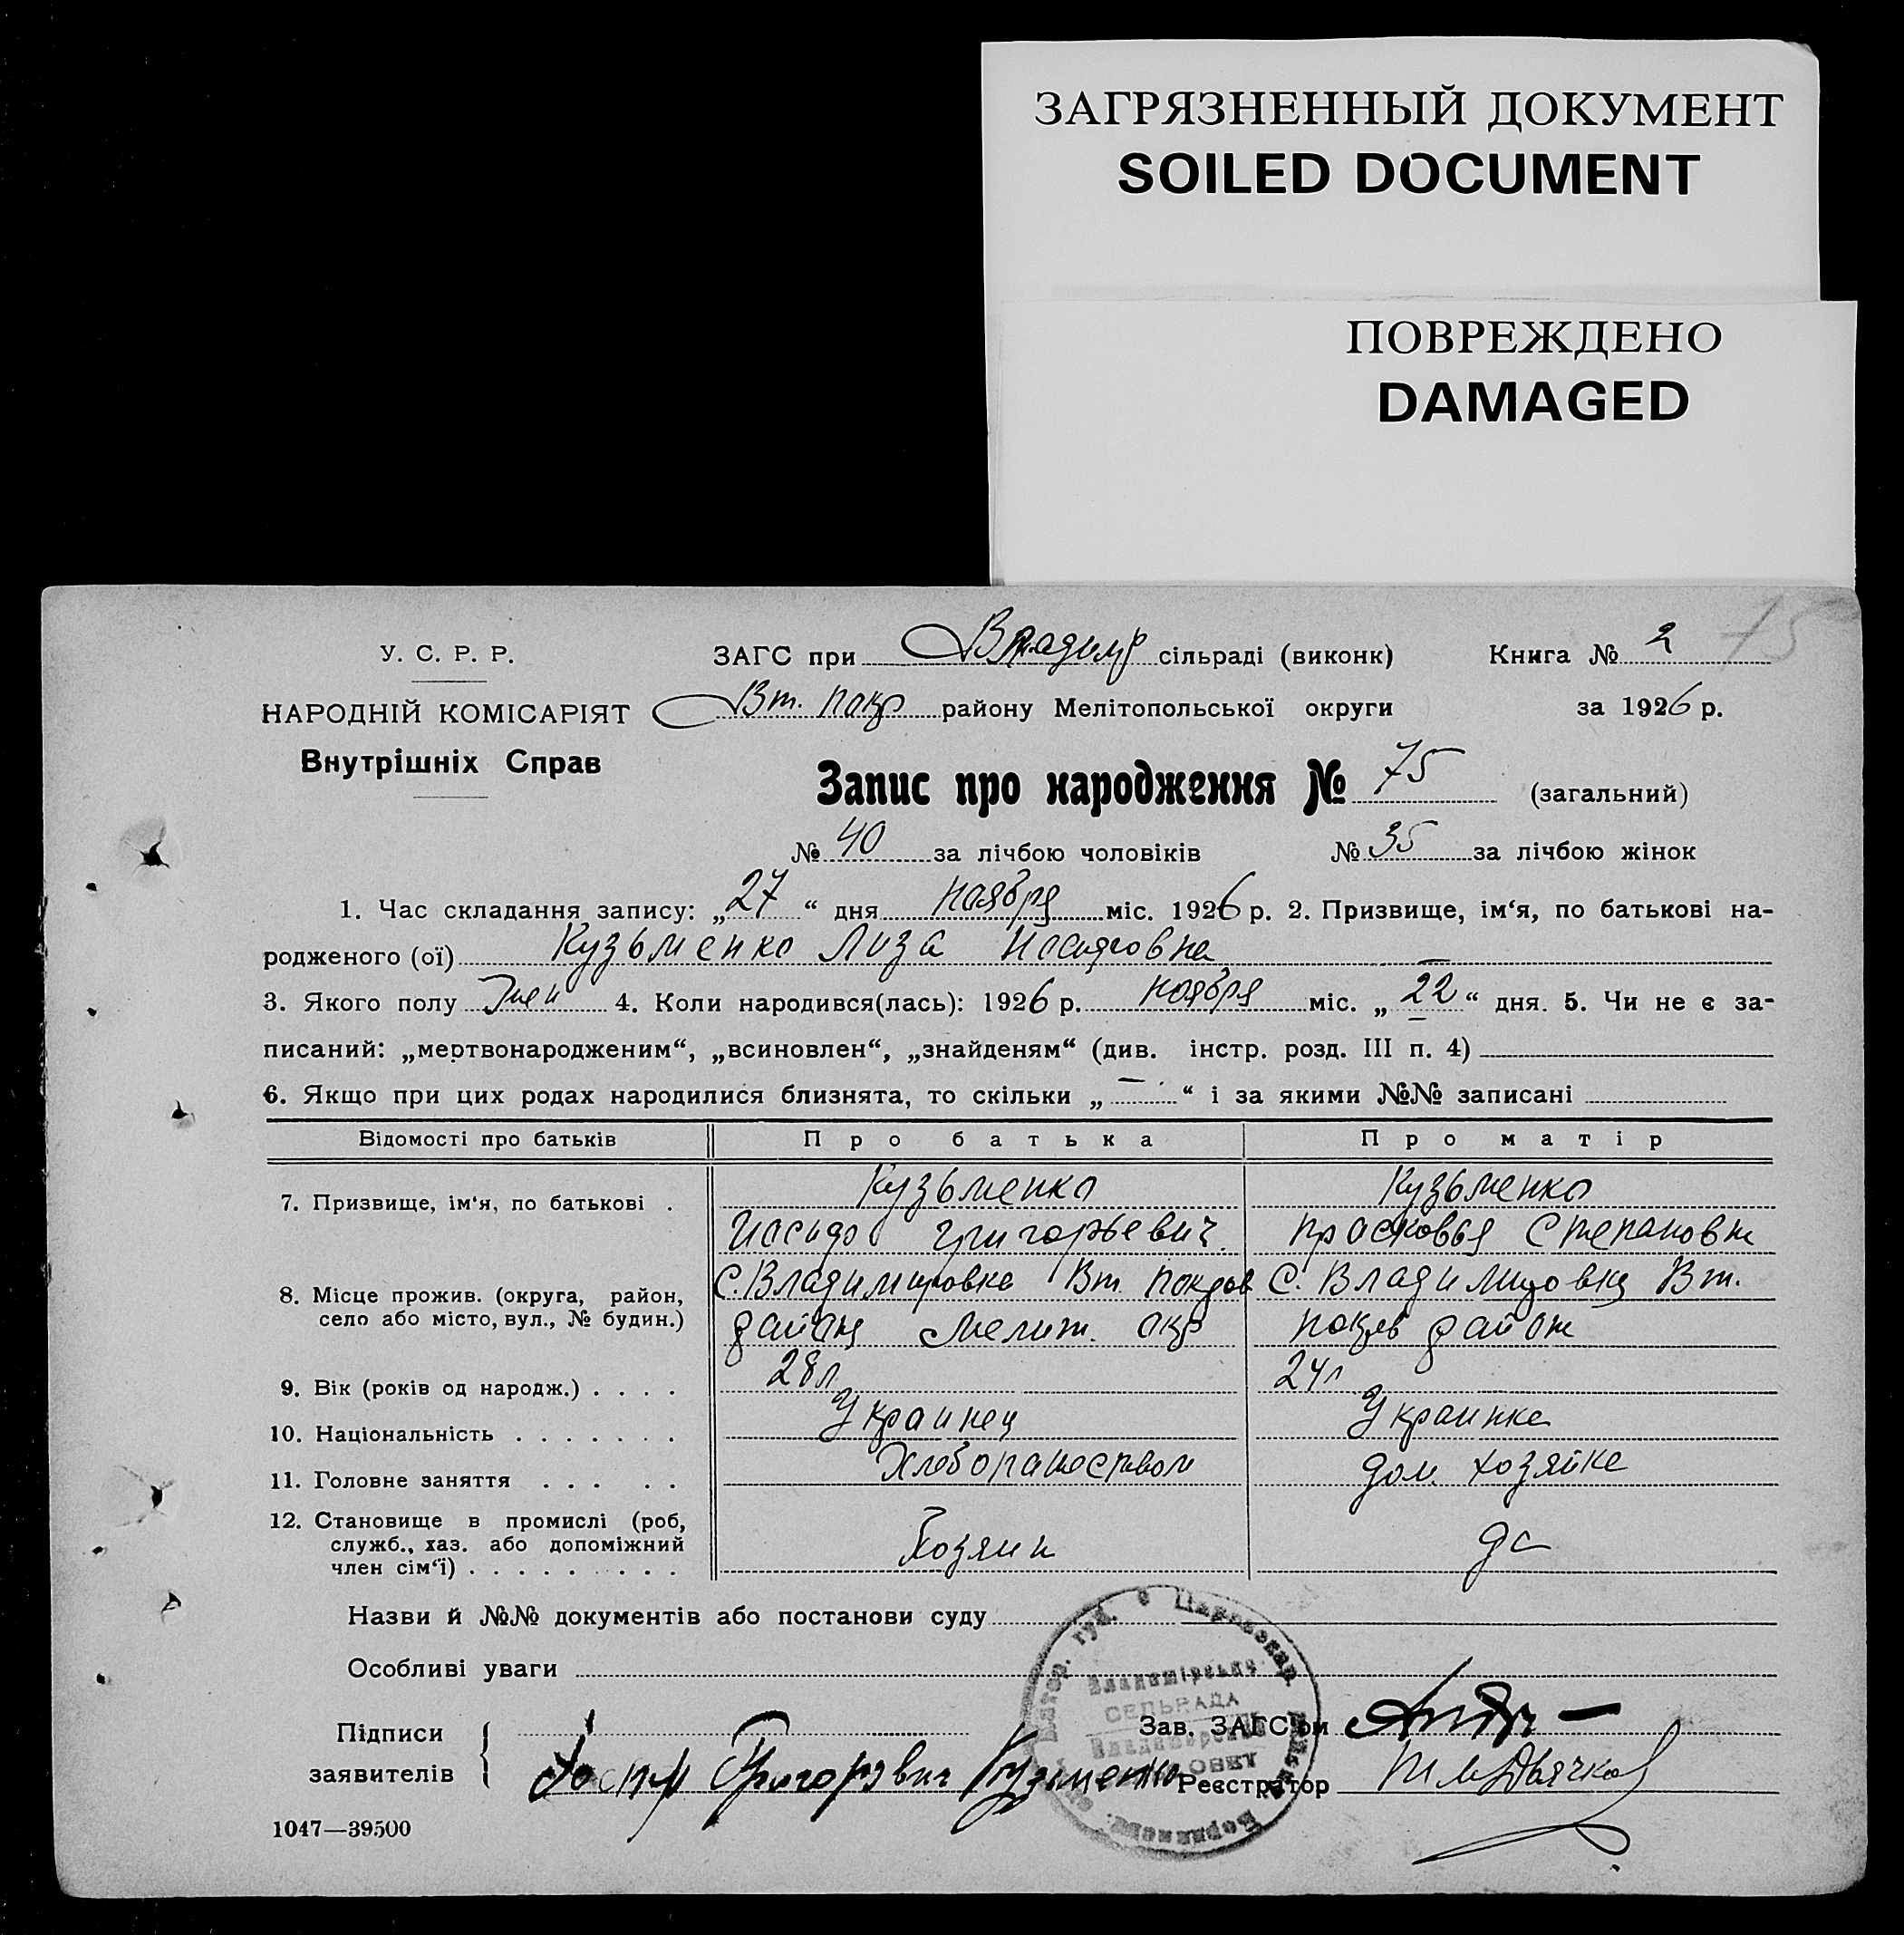 ЗАГРЯЗНЕННЫЙ ДОКУМЕНТ
SOILED DOCUMENT
ПОВРЕЖДЕНО
DAMAGED
75
У. С. Р. Р.
ЗАГС при Владимр сільраді (виконк) Книга № 2
НАРОДНІЙ КОМІСАРІЯТ Вт. покр району Мелітопольської округи за 1926 р.
Внутрішніх Справ
Запис про народження № 75 (загальний)
№ 40 за лічбою чоловіків № 35 за лічбою жінок
1. Час складання запису: „27“ дня ноября міс. 1926 р. 2. Призвище, ім‘я, по батькові на-
родженого (ої) Кузьменко Лиза
3. Якого полу жен 4. Коли народився(лась): 1926 р. ноября міс. „22“ дня. 5. Чи не є за-
писаний: „мертвонародженим“, „всиновлен“, „знайденям“ (див. інстр. розд. III п. 4)
6. Якщо при цих родах народилися близнята, то скільки „ — “ і за якими №№ записані
Відомості про батьків Про батька Про матір
7. Призвище, ім‘я, по батькові . Кузьменко Кузьменко
Григорьевич. Прасковья Степановна
8. Місце прожив. (округа, район, С. Владимировка Вт. Покров С. Владимировка Вт.
село або місто, вул., № будин.) района Мелит. окр покров район
9. Вік (років од народж.) . . . . 28л 24л
10. Національність . . . . . . . Украинец Украинка
11. Головне заняття . . . . . Хлебопашеством дом. хозяйка
12. Становище в промислі (роб, служб., хаз. або допоміжний член сім‘ї) . . . . . . . . . Хозяин да
Назви й №№ документів або постанови суду
Особливі уваги
Підписи Зав. ЗАГС‘ом
заявителів Григорявич Кузьменко Реєстратор
СЕЛЬРАДА
1047—39500